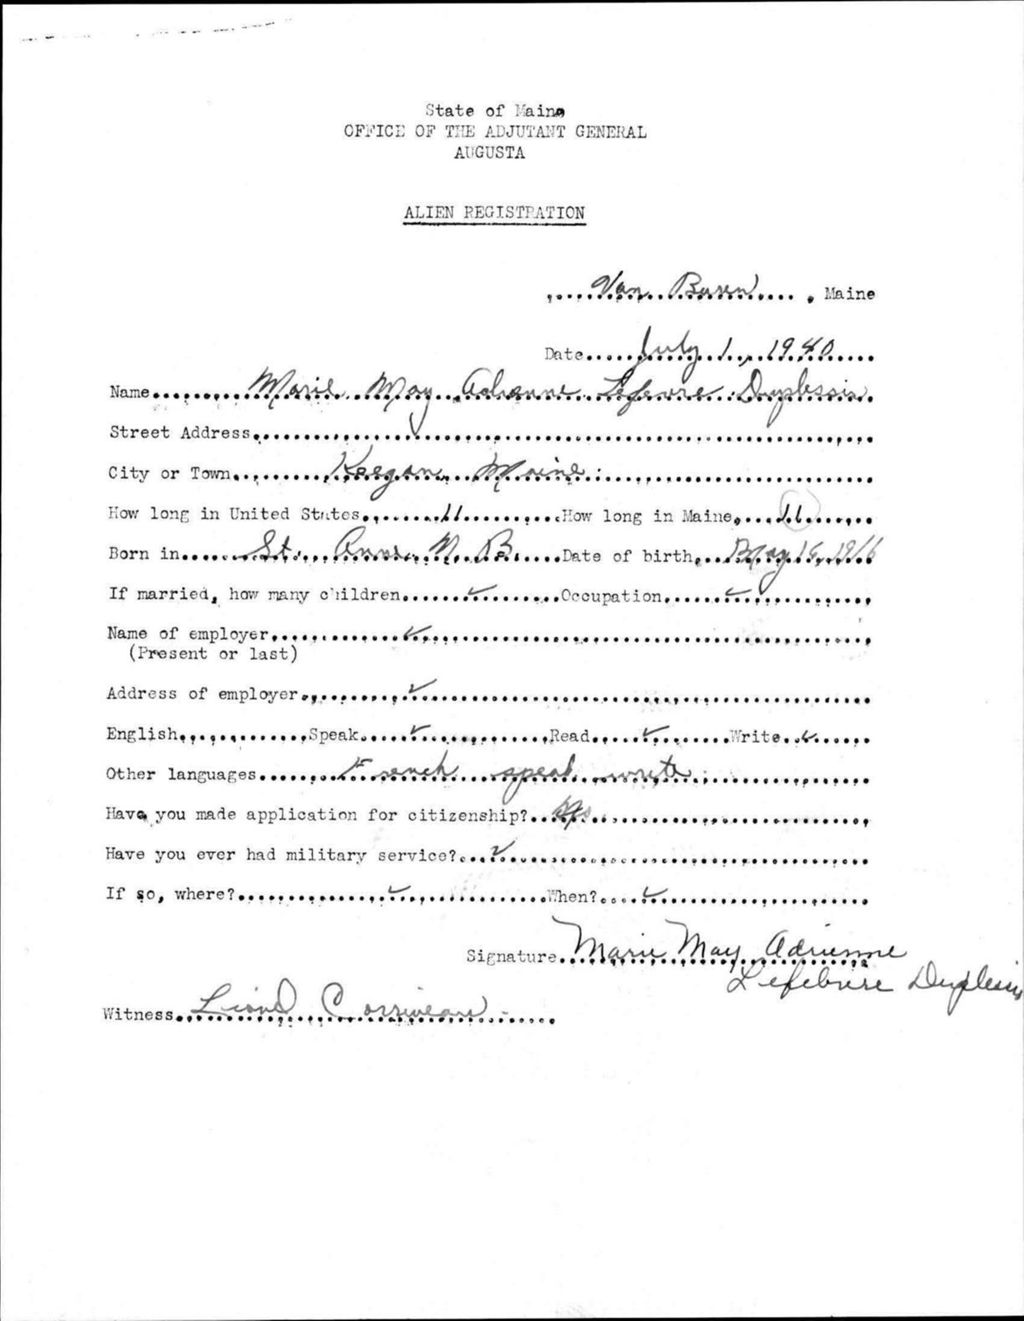 State of Maine
OFFICE OF THE ADJUTANT GENERAL
AUGUSTA
ALIEN REGISTRATION
Van Buren, Maine
Date July 1, 1940
Name Marie May Adrienne Lefebvre Duplessis
Street Address
City or Town Keegan, Maine
How long in United States 11 How long in Maine 11
Born in St. Anne N. B. Date of birth May 16, 1916
If married, how many children ✓ Occupation ✓
Name of employer ✓
(Present or last)
Address of employer ✓
English Speak ✓ Read ✓ Write ✓
Other languages French speak write
Have you made application for citizenship?
Have you ever had military service? ✓
If so, where? ✓ When? ✓
Signature Marie May Adrienne
Lefebvre Duplessis
Witness Corriveau